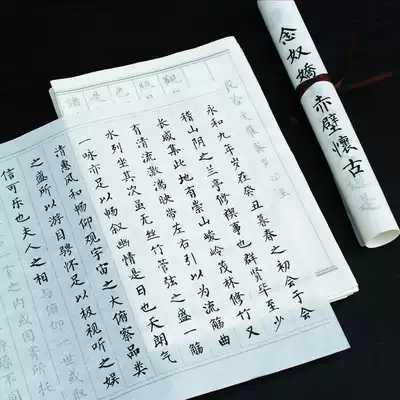 念奴嬌 赤壁懷古
永和九年岁在癸丑暮春之初会于会
稽山阴之兰亭修禊事也群贤毕至少
长咸集此地有崇山峻岭茂林修竹又
有清流激湍映带左右引以为流觞曲
水列坐其次虽无丝竹管弦之盛一觞
一咏亦足以畅叙幽情是日也天朗气
清惠风和畅仰观宇宙之大俯察品类
之盛所以游目骋怀足以极视听之娱
信可乐也夫人之相与俯仰一世或取
之内或因寄所托
躁不同